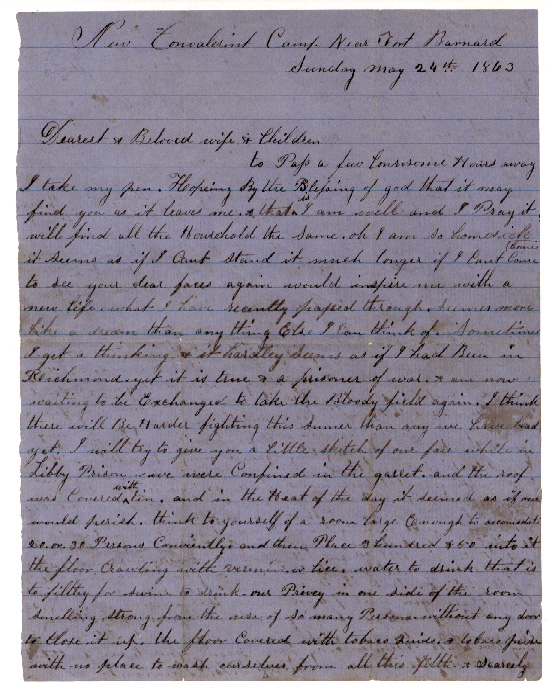 New Convalesint Camp. Near Fort Barnard
Sunday May 24th 1863
Dearest & Beloved wife & Children
to Pass a few Lonesome Hours away
I take my pen. Hopeing By the Blessing of god that it may
find you as it leaves me. & that is I am well and I Pray it
will find all the Household the same. oh I am so homesick
it seems as if I Cant stand it much longer if I Cant Come (home
to see your dear faces again would inspire me with a
new life. what I have recently passed through. seemes more
like a dream than anything Else I Can think of. Sometimes
I get a thinking & it hardley seems as if I had Been in
Reichmond. yet it is true & a prisoner of war. & am now
waiting to be Exchanged to take the Bloody field again. I think
there will Be Harder fighting this sumer than any we have had
yet. I will try to give you a little sketch of our fare whil in
Libby Prison. wave were Confined in the garret. and the roof
was Covered with tin. and in the Heat of the day it seimed as if one
would perish. think to yourself of a room large Enough to acomodate
20. or. 30 Persons Conviently and then Place 3 hundred & 50 into it
the floor. Crawling with vermin or lice. water to drink that is
to filthy for swine to drink. our Privey in one side of the room
smelling strong from the use of so many Persons without any door
to Close it up. the floor Covered with tobaco quids. & tobaco juice
with no place to wash ourselves from all this filth. & scarcely